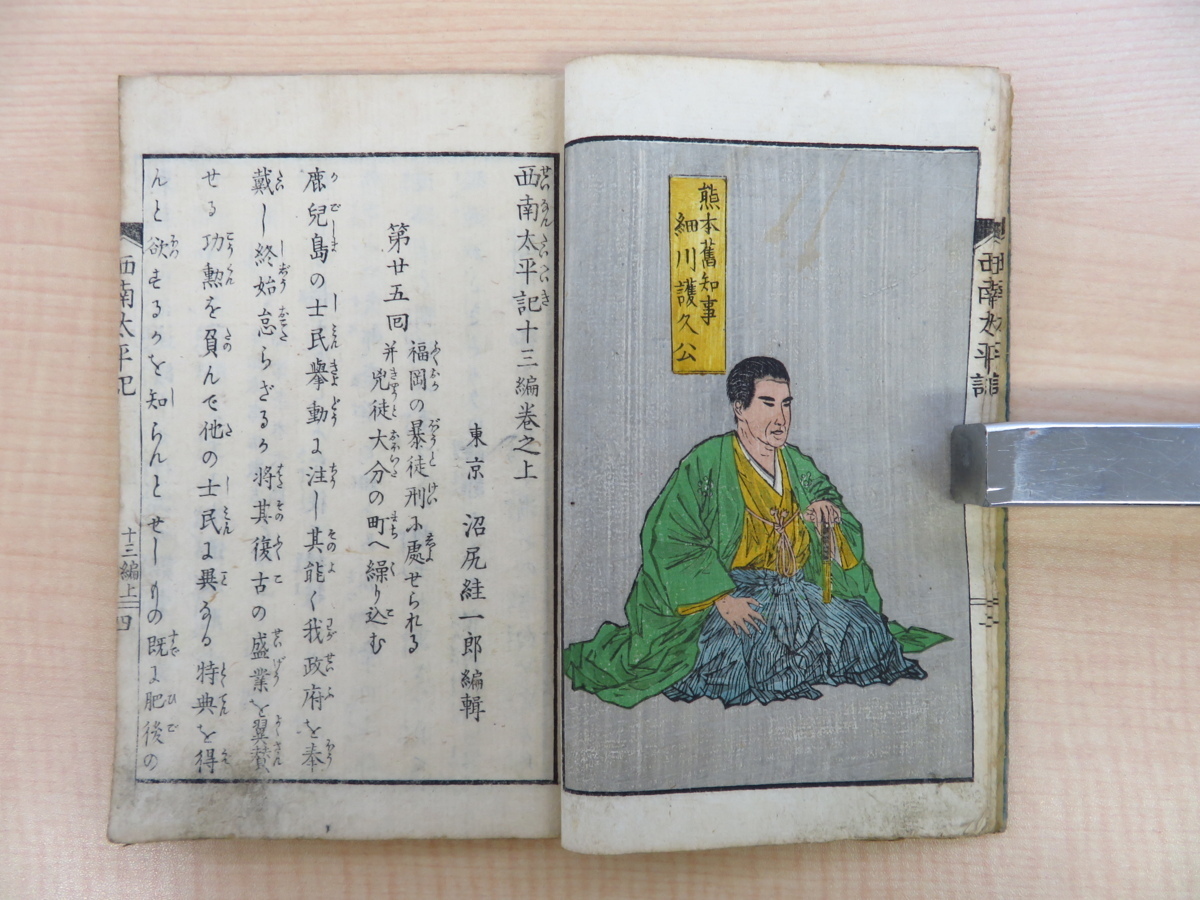 熊本舊知事
細川護久公
西南太平記
西南太平記十三編卷之上
東京 沼尻絓一郎編輯
第廿五回
福岡の暴徒刑に處せられる
并兇徒大分の町へ繰り込む
鹿兒島の士民擧動に注し其能く我政府を奉
戴し終始怠らざるか將其復古の盛業を翼賛
せる功勲を負んで他の士民に異なる特典を得
んと欲するかを知らんとせしもの既に肥後の
西南太平記
十三編上
四